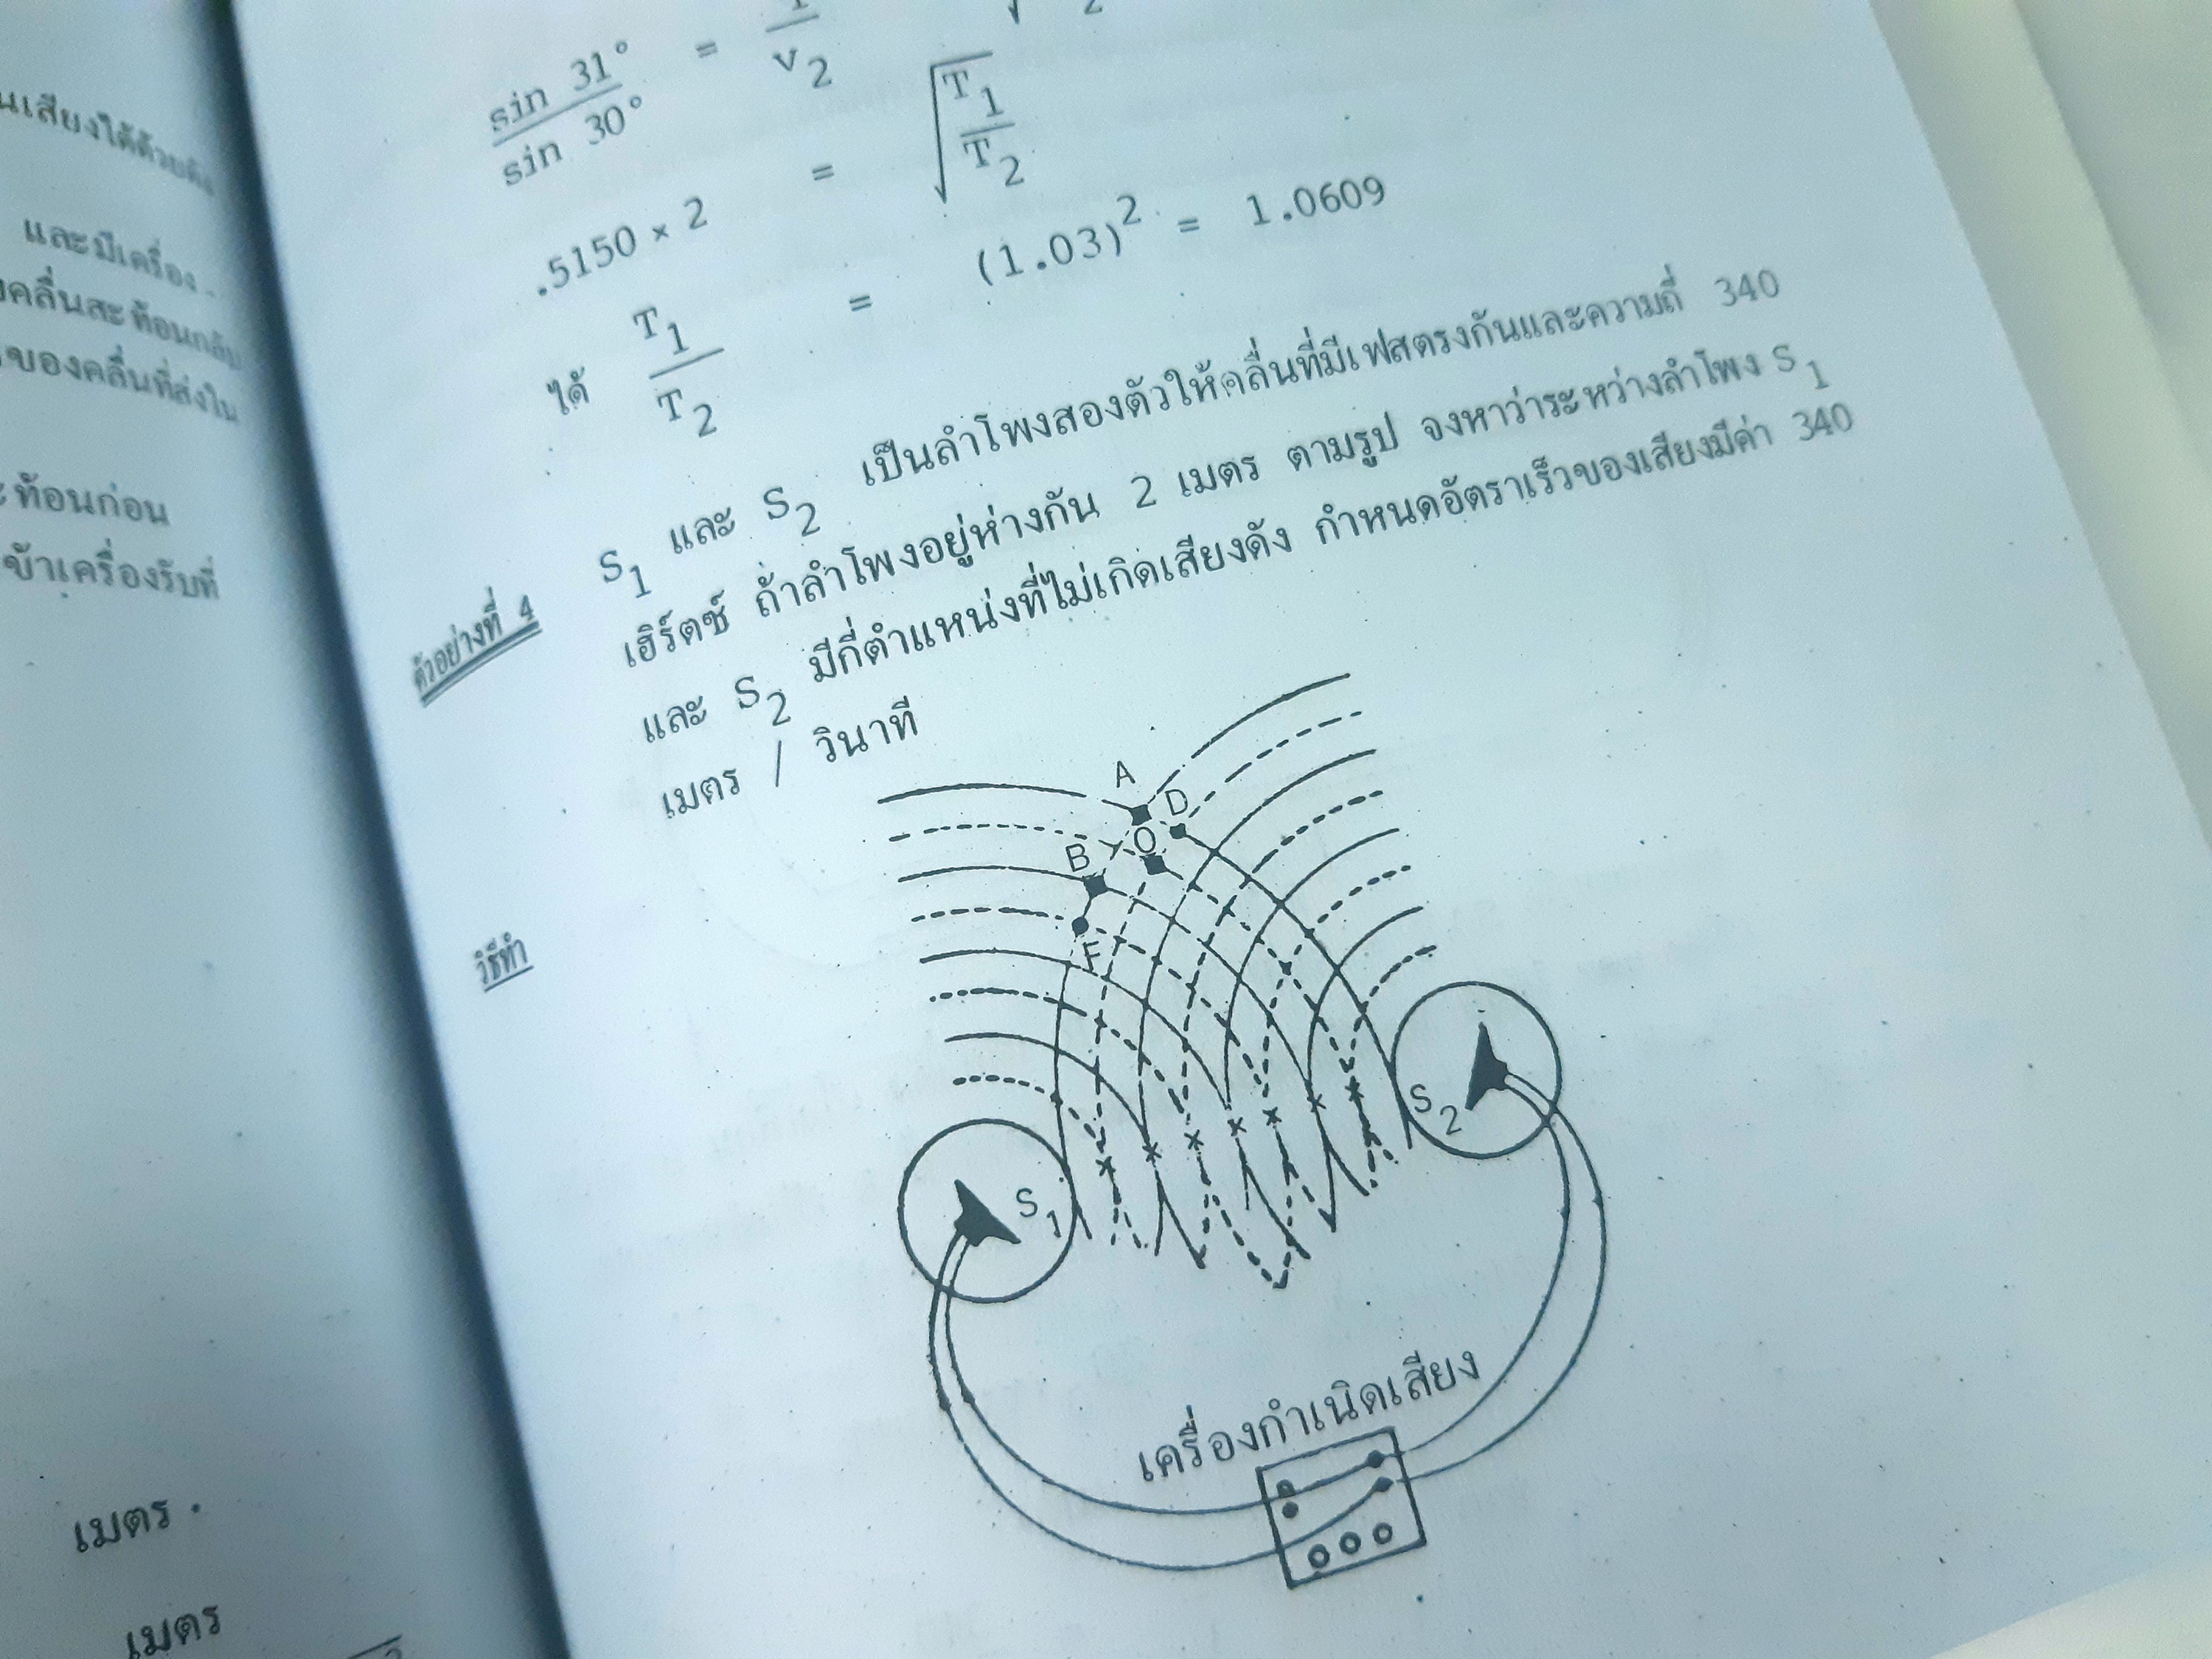 และมีเครื่อง -
ท้อนก่อน
ข้าเครื่องรับที่
เมตร .
เมตร
sin 31° / sin 30° =
v2
.5150 × 2 = √ T1 / T2
ได้ T1 / T2 = (1.03)2 = 1.0609
ตัวอย่างที่ 4 S1 และ S2 เป็นลำโพงสองตัวให้คลื่นที่มีเฟสตรงกันและความถี่ 340
เฮิร์ตซ์ ถ้าลำโพงอยู่ห่างกัน 2 เมตร ตามรูป จงหาว่าระหว่างลำโพง S1
และ S2 มีกี่ตำแหน่งที่ไม่เกิดเสียงดัง กำหนดอัตราเร็วของเสียงมีค่า 340
เมตร / วินาที
วิธีทำ
A
D
O
B
F
S2
S1
เครื่องกำเนิดเสียง